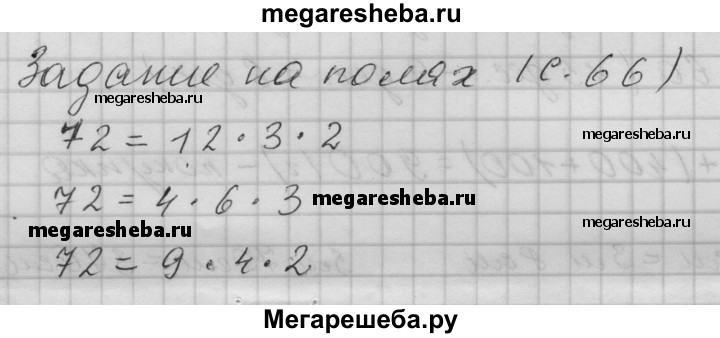 megaresheba.ru
Задание на полях (с. 66)
megaresheba.ru
72 = 12 · 3 · 2
megaresheba.ru
72 = 4 · 6 · 3
megaresheba.ru
megaresheba.ru
megaresheba.ru
72 = 9 · 4 · 2
Мегарешеба.ру